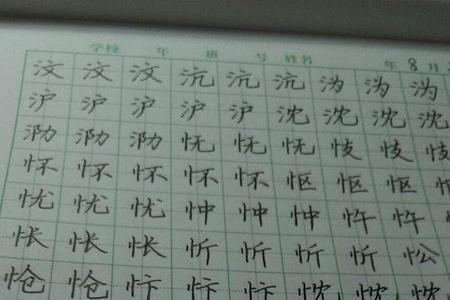 学校 年 班 号 姓名 年 8 月
汶 汶 汶 沆 沆 沆 沩 沩 沩
沪 沪 沪 沪 沪 沈 沈 沈 沈
泐 泐 泐 怃 怃 怃 忮 忮 忮
怀 怀 怀 怀 怀 怄 怄 怄 怄
忧 忧 忧 忡 忡 忡 忤 忤
怅 怅 怅 忻 忻 忻 忻 忪
怆 怆 忭 忭 忭 忱 忱 忱